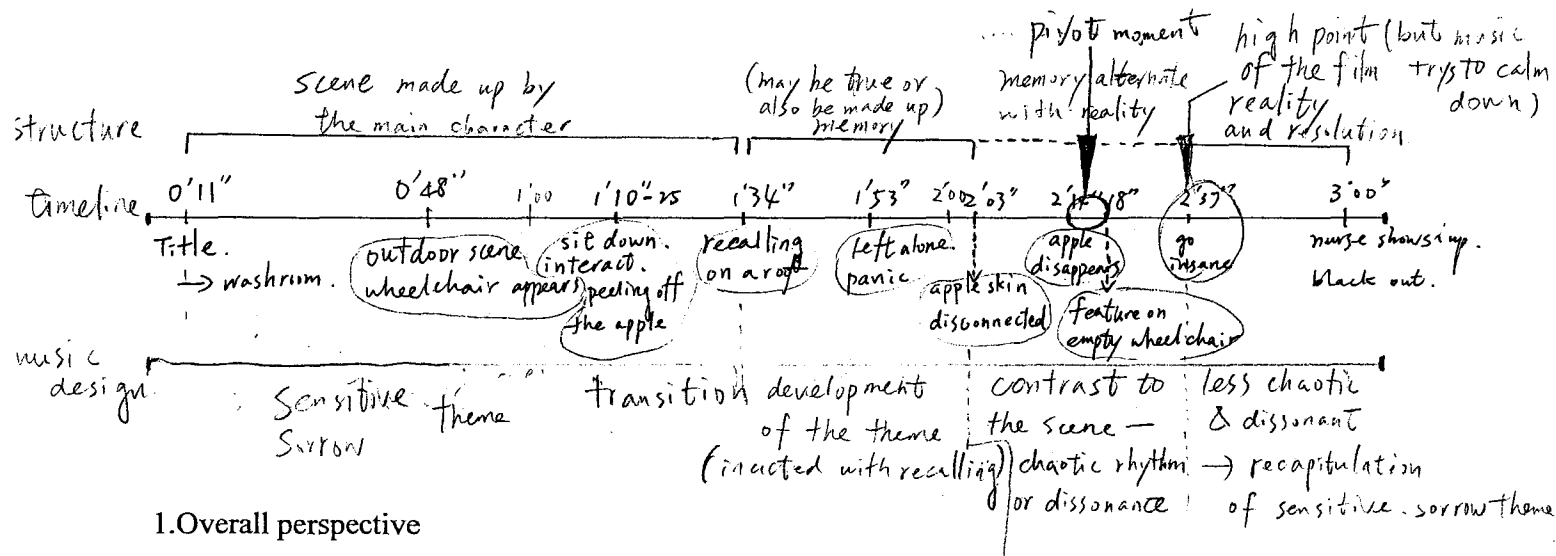 .... pivot moment
high point (but music
of the film trys to calm
down)
scene made up by
the main character
(may be true or
also be made up)
memory
memory alternate
with reality
reality
and resolution
structure
timeline
0'11"
0'48"
1'00
1'10"-25
1'34"
1'53"
2'00
2'03"
18"
2'37"
3'00"
Title.
→ washroom.
outdoor scene
wheelchair appears
sit down.
interact.
peeling off
the apple
recalling
on a roof
Left alone.
panic
apple skin
disconnected
apple
disappears
feature on
empty wheelchair
go
insane
nurse shows up.
black out.
music
design.
Sensitive theme
Sorrow
transition
development
of the theme
(inacted with recalling)
contrast to
the scene —
chaotic rhythm
or dissonance
less chaotic
& dissonant
→ recapitulation
of sensitive. sorrow theme
1.Overall perspective